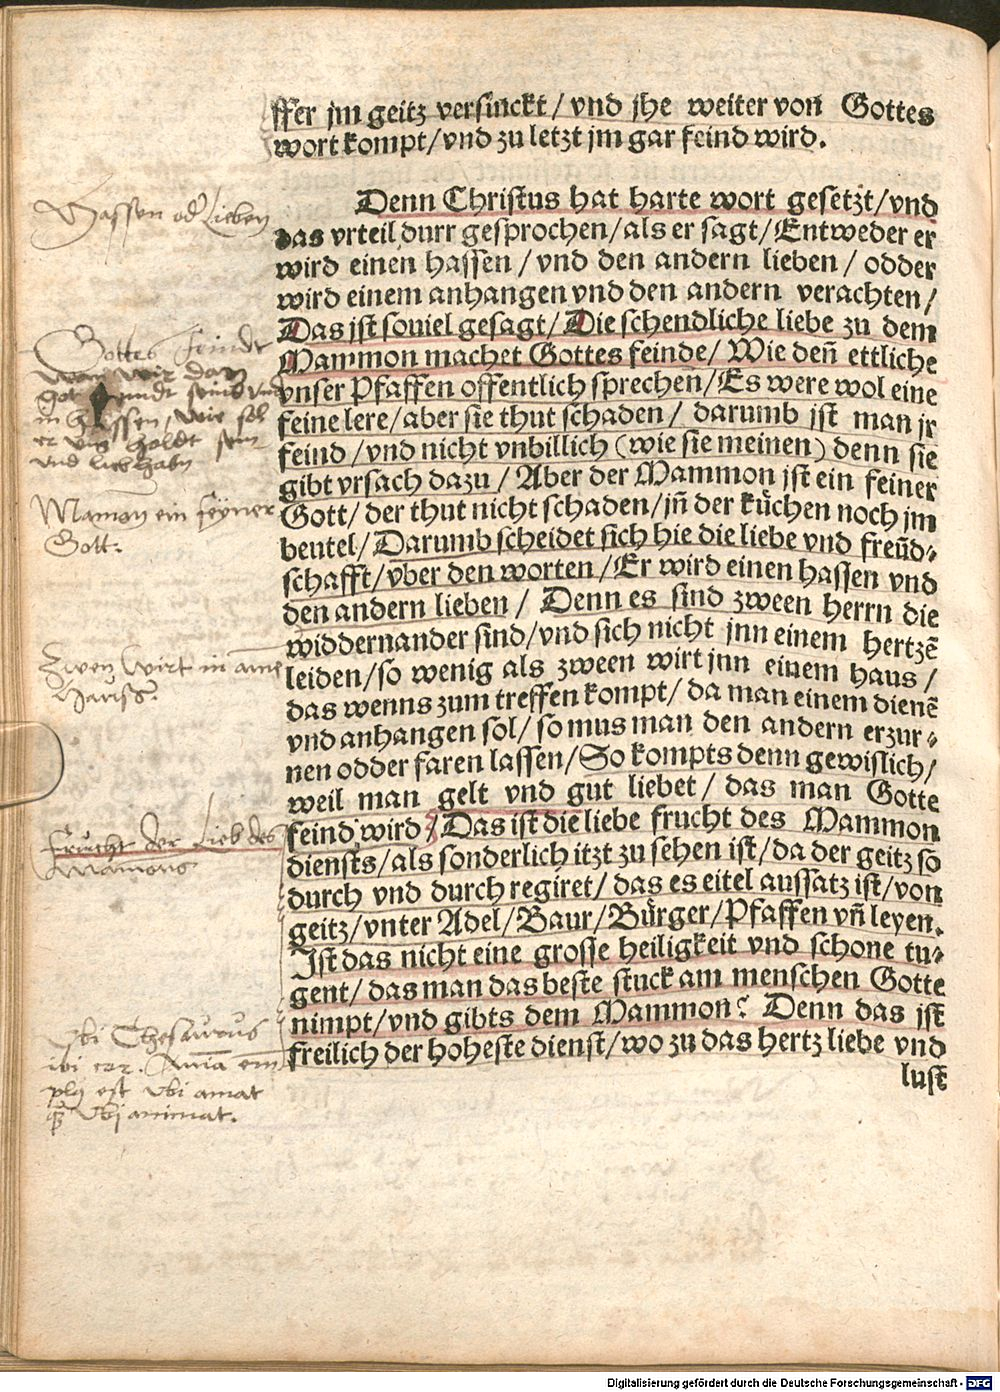 ffer jm geitz versinckt/vnd jhe weiter von Gottes
wort kompt/vnd zu letzt jm gar feind wird.
Denn Christus hat harte wort gesetzt/vnd
das vrteil durr gesprochen/als er sagt/Entweder er
wird einen hassen/vnd den andern lieben/odder
wird einem anhangen vnd den andern verachten/
Das jst souiel gesagt/Die schendliche liebe zu dem
Mammon machet Gottes feinde/Wie deñ ettliche
vnser Pfaffen offentlich sprechen/Es were wol eine
feine lere/aber sie thut schaden/darumb jst man jr
feind/vnd nicht vnbillich (wie sie meinen) denn sie
gibt vrsach dazu/Aber der Mammon jst ein feiner
Gott/der thut nicht schaden/jñ der kuͤchen noch jm
beutel/Darumb scheidet sich hie die liebe vnd freũd⸗
schafft/vber den worten/Er wird einen hassen vnd
den andern lieben/Denn es sind zween herrn die
widdernander sind/vnd sich nicht jnn einem hertzẽ
leiden/so wenig als zween wirt jnn einem haus/
das wenns zum treffen kompt/da man einem dienẽ
vnd anhangen sol/so mus man den andern erzur⸗
nen odder faren lassen/So kompts denn gewislich/
weil man gelt vnd gut liebet/das man Gotte
feind wird/Das ist die liebe frucht des Mammon
diensts/als sonderlich itzt zu sehen ist/da der geitz so
durch vnd durch regiret/das es eitel aussatz ist/von
geitz/vnter Adel/Baur/Buͤrger/Pfaffen vñ leyen.
Ist das nicht eine grosse heiligkeit vnd schone tu⸗
gent/das man das beste stuck am menschen Gotte
nimpt/vnd gibts dem Mammon? Denn das jst
freilich der hoheste dienst/wo zu das hertz liebe vnd
lust
Hassen od' Lieben
Gottes feindt
wan wir dan
got feindt seind vnd
in hassen, wie sol
er vns holdt sein
vnd lieb habn
Mamon ein feyner
Gott.
Zwen Wirt in
Hauss.
Frucht der Lieb des
Mamons
Vbi Thesaurus
ibi cor.
est vbi amat
vbi animat.
Digitalisierung gefördert durch die Deutsche Forschungsgemeinschaft - DFG